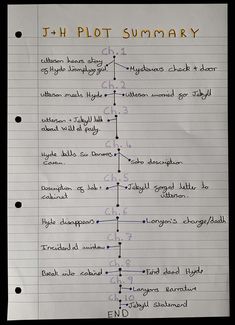 J+H PLOT SUMMARY
Ch. 1
Utterson hears story
of Hyde trampling girl
Mysterious check + door
Ch. 2
Utterson meets Hyde
Utterson worried for Jekyll
Ch. 3
Utterson + Jekyll talk
about Will at party.
Ch. 4
Hyde kills Sir Danvers
Carew.
Soho description
Ch. 5
Description of lab +
cabinet
Jekyll forged letter to
Utterson.
Ch. 6
Hyde disappears
Lanyon's change/death
Ch. 7
Incident at window
Ch. 8
Break into cabinet
Find dead Hyde
Ch. 9
Lanyons Narrative
Ch. 10
Jekyll Statement
END